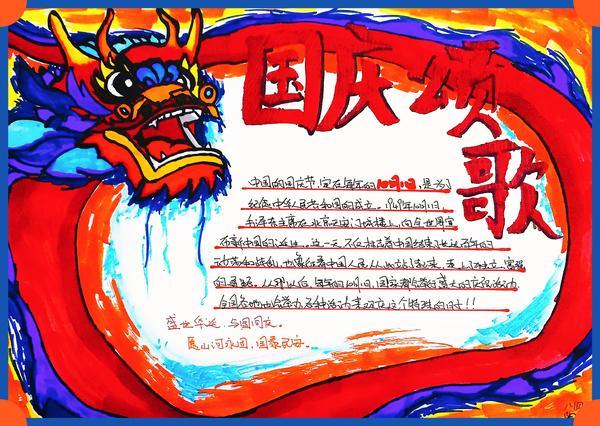 国庆颂歌
中国的国庆节,定在每年的10月1日,是为了
纪念中华人民共和国的成立。1949年10月1日,
毛泽东主席在北京天安门城楼上,向全世界宣
布新中国的诞生。这一天不仅标志着中国结束了近百年的
动荡和战乱,也象征着中国人民从此站了起来,走上了独立、富强
的道路。从那以后,每年的10月1日,国家都会举行盛大的庆祝活动
全国各地也会举办各种活动来欢庆这个特殊的日子!!
盛世华诞,与国同庆。
愿山河永固,国泰民安。